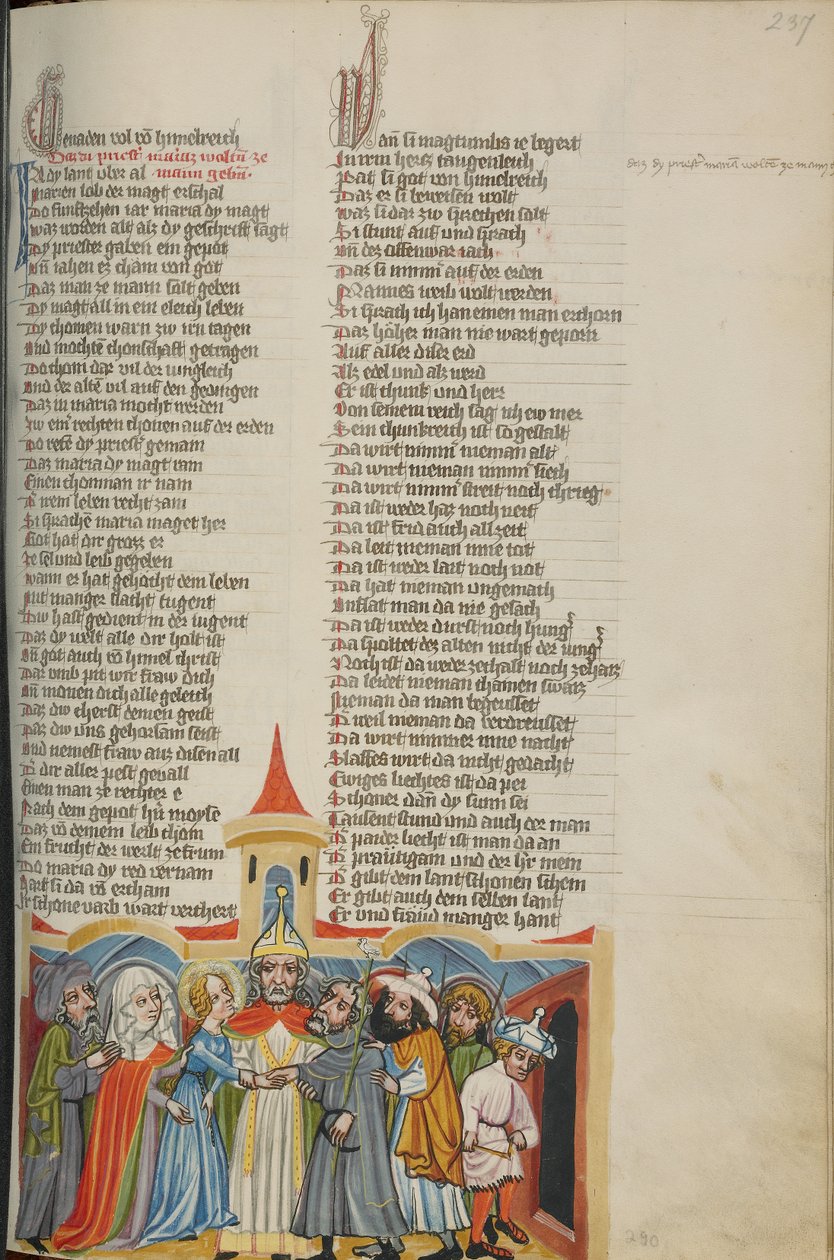 237
Genaden vol võ himelreich
Daz di priest' mariaz woltñ ze
mann gebñ.
Uber al
Marien lob der magt erschal
Do funftzehen iar maria dy magt
Waz worden alt alz dy geschrift sagt
Dy priester gaben ein gepot
Uñ iahen ez cham von got
Daz man ze mann solt geben
Dy magt all in ein eleich leben
Dy chomen warn zw irn tagen
Und mochtē chonschaft getragen
Do chom dar vil der iungleich
Und der altē vil auf den gedingen
Daz in maria mocht werden
Zw ein' rechten chonen auf der erden
Do retē dy priest' gemain
Daz maria dy magt rain
Einen chonman ir nam
Ir leben recht zam
Si sprachē maria maget her
Got hat dir grozz er
Ze sel und leib gegeben
Wann er hat gehocht dein leben
Mit manger slacht tugent
Dw hast gedient in der iugent
Daz dy welt alle dir holt ist
Uñ got auch võ himel christ
Dar umb pit wir fraw dich
Uñ monen dich alle geleich
Daz dw cherst deinen geist
Daz dw uns gehorsam seist
Und nemest fraw auz disen all
D' dir aller pest gevall
Einen man ze rechter e
Nach dem gepot hñ moyse
Daz võ deinem leib chöm
Ein frucht der werlt ze frum
Do maria dy red vernam
Hart si da võ ercham
Ir schone varb wart verchert
Wañ si magtumbs ie begert
In irm hertz taugenleich
Pat si got von himelreich
Daz er si beweisen wolt
Waz si dar zw sprechen solt
Si stunt auf und sprach
Uñ dez offenwar iach
Daz si nimm' auf der erden
Mannes weib wolt werden
Si sprach ich han einen man erchorn
Daz höher man nie wart geporn
Auf aller diser erd
Alz edel und alz werd
Er ist chunk und herr
Von seinem reich sag ich ew mer
Sein chunkreich ist so gestalt
Da wirt nimm' nieman alt
Da wirt nieman nimm' siech
Da wirt nimm' streit noch chrieg
Da ist weder haz noch neit
Da ist frid auch all zeit
Da leit nieman nine tot
Da ist weder lait noch not
Da hat nieman ungemach
Unflat man da nie gesach
Da ist weder durst noch hung'
Da spottet dez alten nicht der iung'
Noch ist da weder ze chalt noch ze haiz
Da leidet nieman chainen swaiz
Nieman da man begeusset
D' weil nieman da verdreusset
Da wirt nimmer nine nacht
Slaffes wirt da nicht gedacht
Ewiges liechtes ist da pei
Schoner dañ dy sunn sei
Tausent stund und auch der man
D' paider liecht ist man da an
D' präutigam und der h'r mein
D' gibt dem lant schonen schein
Er gibt auch dem selben lant
Er und fräud manger hant
daz dy priest' mariā woltē ze mann g
290